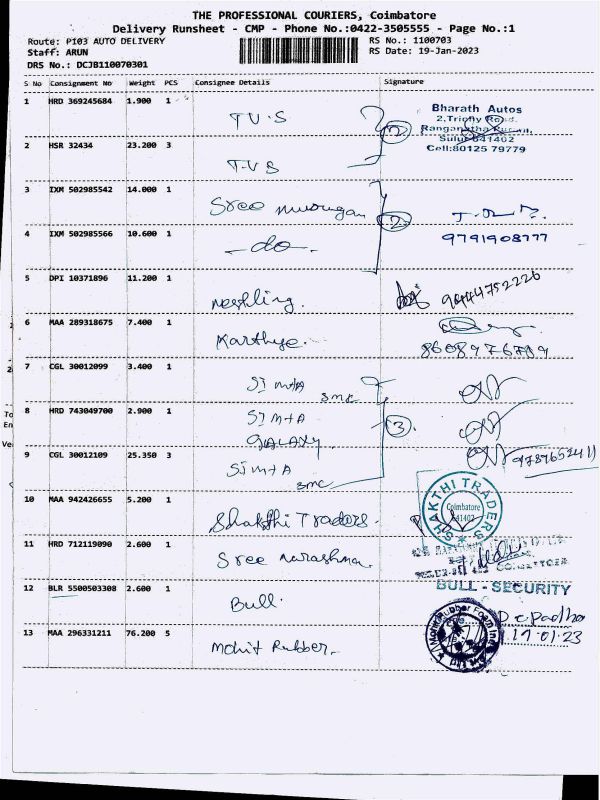 THE PROFESSIONAL COURIERS, Coimbatore
Delivery Runsheet - CMP - Phone No.:0422-3505555 - Page No.:1
Route: P103 AUTO DELIVERY
Staff: ARUN
DRS No.: DCJB110070301
RS No.: 1100703
RS Date: 19-Jan-2023
S No Consignment No Weight PCS Consignee Details Signature
1 HRD 369245684 1.900 1 TVS
Bharath Autos
2,Trichy Road,
Sulur 641402
Cell:80125 79779
2 HSR 32434 23.200 3 TVS
3 IXM 502985542 14.000 1 Sree murugan 2
4 IXM 502985566 10.600 1 -do-. 9791908777
5 DPI 10371896 11.200 1 9444752226
6 MAA 289318675 7.400 1 Karthye. 8608976789
7 CGL 30012099 3.400 1 SIMTA SMC
8 HRD 743049700 2.900 1 SIMTA GALAXY 3
9 CGL 30012109 25.350 3 SIMTA SMC
10 MAA 942426655 5.200 1 Shakthi Traders.
SHAKTHI TRADERS
Coimbatore
641402
11 HRD 712119090 2.600 1 Sree
12 BLR 5500503308 2.600 1 Bull.
BULL - SECURITY
13 MAA 296331211 76.200 5 Mohit Rubber.
19.01.23